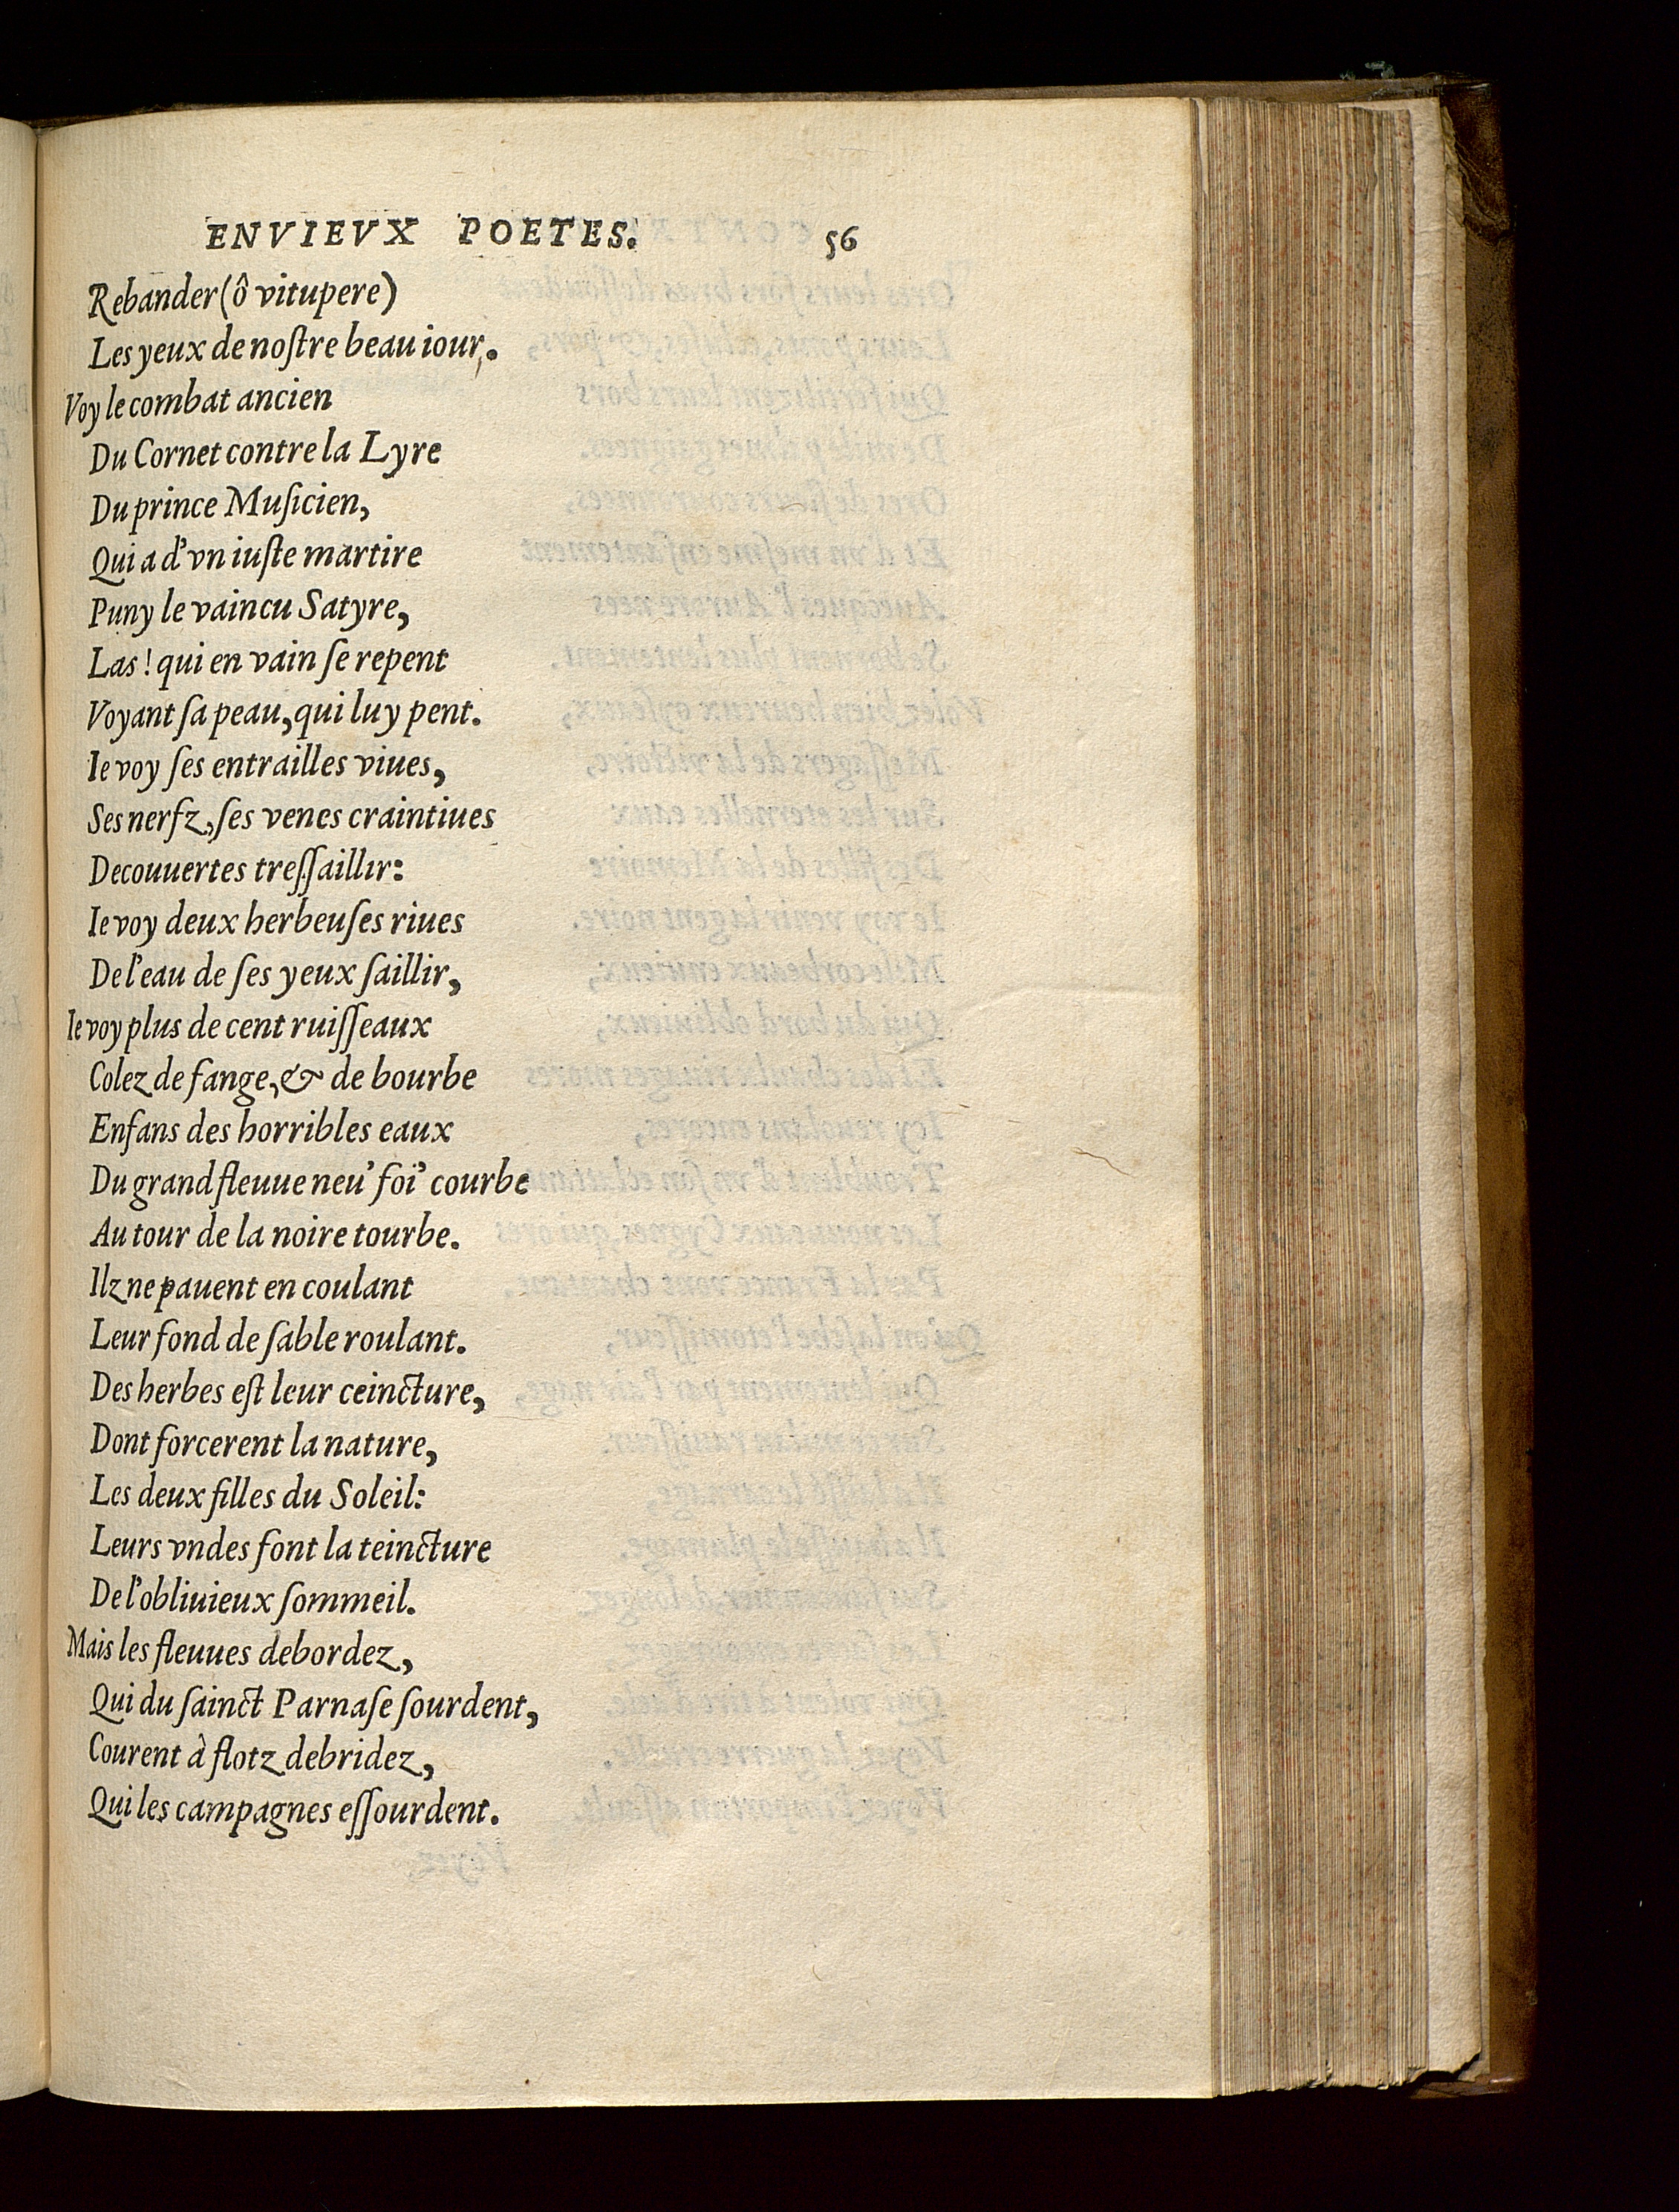 ENVIEVX POETES. 56
Rebander (ô vitupere)
Les yeux de noſtre beau iour.
Voy le combat ancien
Du Cornet contre la Lyre
Du prince Muſicien,
Qui a d'vn iuſte martire
Puny le vaincu Satyre,
Las! qui en vain ſe repent
Voyant ſa peau, qui luy pent.
Ie voy ſes entrailles viues,
Ses nerfz, ſes venes craintiues
Decouuertes treſſaillir:
Ie voy deux herbeuſes riues
De l'eau de ſes yeux ſaillir,
Ie voy plus de cent ruiſſeaux
Colez de fange, & de bourbe
Enfans des horribles eaux
Du grand fleuue neu' foi' courbe
Au tour de la noire tourbe.
Ilz ne pauent en coulant
Leur fond de ſable roulant.
Des herbes eſt leur ceincture,
Dont forcerent la nature,
Les deux filles du Soleil:
Leurs vndes font la teincture
De l'obliuieux ſommeil.
Mais les fleuues debordez,
Qui du ſainct Parnaſe ſourdent,
Courent à flotz debridez,
Qui les campagnes eſſourdent.